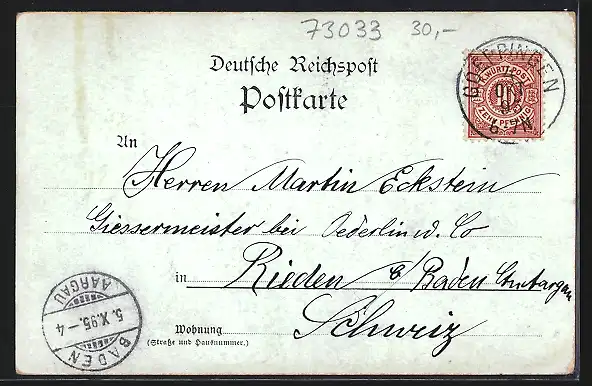 73033 30,-
Deutsche Reichspost
Postkarte
GOEPPINGEN
K. WÜRTT. POST
10
ZEHN PFENNIG
6-7N
An
Herren Martin Eckstein
Giessermeister bei Oederlin u. Co
in Rieden b/Baden Ct. Aargau
Wohnung Schweiz
(Straße und Hausnummer.)
AARGAU
5.X.95.-4
BADEN